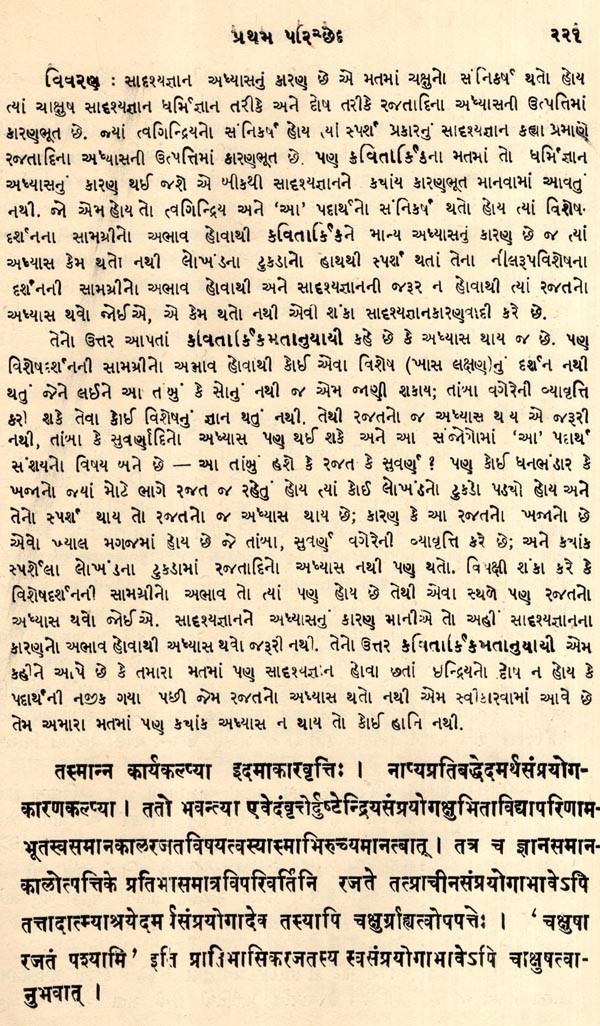 પ્રથમ પરિચ્છેદ ૨૨૧
વિવરણ : સાદૃશ્યજ્ઞાન અધ્યાસનું કારણ છે એ મતમાં ચક્ષુનો સંનિકર્ષ થતો હોય
ત્યાં ચાક્ષુષ સાદૃશ્યજ્ઞાન ધર્મિજ્ઞાન તરીકે અને દોષ તરીકે રજતાદિના અધ્યાસની ઉત્પત્તિમાં
કારણભૂત છે. જ્યાં ત્વગિન્દ્રિયનો સંનિકર્ષ હોય ત્યાં સ્પર્શ પ્રકારનું સાદૃશ્યજ્ઞાન કહ્યા પ્રમાણે
રજતાદિના અધ્યાસની ઉત્પત્તિમાં કારણભૂત છે. પણ કવિતાર્કિકના મતમાં તો ધર્મિજ્ઞાન
અધ્યાસનું કારણ થઈ જશે એ બીકથી સાદૃશ્યજ્ઞાનને કયાંય કારણભૂત માનવામાં આવતું
નથી. જો એમ હોય તો ત્વગિન્દ્રિય અને ‘આ’ પદાર્થનો સંનિકર્ષ થતો હોય ત્યાં વિશેષ-
દર્શનના સામગ્રીનો અભાવ હોવાથી કવિતાર્કિકને માન્ય અધ્યાસનું કારણ છે જ ત્યાં
અધ્યાસ કેમ થતો નથી લોખંડના ટુકડાનો હાથથી સ્પર્શ થતાં તેના નીલરૂપવિશેષના
દર્શનની સામગ્રીનો અભાવ હોવાથી અને સાદૃશ્યજ્ઞાનની જરૂર ન હોવાથી ત્યાં રજતનો
અધ્યાસ થવો જોઈએ, એ કેમ થતો નથી એવી શંકા સાદૃશ્યજ્ઞાનકારણવાદી કરે છે.
તેનો ઉત્તર આપતાં કવિતાર્કિકમતાનુયાયી કહે છે કે અધ્યાસ થાય જ છે. પણ
વિશેષદર્શનની સામગ્રીનો અભાવ હોવાથી કોઈ એવા વિશેષ (ખાસ લક્ષણ)નું દર્શન નથી
થતું જેને લઈને આ તાંબું કે સોનું નથી જ એમ જાણી શકાય; તાંબા વગેરેની વ્યાવૃત્તિ
કરી શકે તેવા કોઈ વિશેષનું જ્ઞાન થતું નથી. તેથી રજતનો જ અધ્યાસ થાય એ જરૂરી
નથી, તાંબા કે સુવર્ણાદિનો અધ્યાસ પણ થઈ શકે અને આ સંજોગોમાં ‘આ’ પદાર્થ
સંશયનો વિષય બને છે — આ તાંબું હશે કે રજત કે સુવર્ણ ? પણ કોઈ ધનભંડાર કે
ખજાનો જ્યાં મોટે ભાગે રજત જ રહેતું હોય ત્યાં કોઈ લોખંડનો ટુકડો પડ્યો હોય અને
તેનો સ્પર્શ થાય તો રજતનો જ અધ્યાસ થાય છે; કારણ કે આ રજતનો ખજાનો છે
એવો ખ્યાલ મગજમાં હોય છે જે તાંબા, સુવર્ણ વગેરેની વ્યાવૃત્તિ કરે છે; અને કયાંક
સ્પર્શેલા લોખંડના ટુકડામાં રજતાદિનો અધ્યાસ નથી પણ થતો. વિપક્ષી શંકા કરે કે
વિશેષદર્શનની સામગ્રીનો અભાવ તો ત્યાં પણ હોય છે તેથી એવા સ્થળે પણ રજતનો
અધ્યાસ થવો જોઈએ. સાદૃશ્યજ્ઞાનને અધ્યાસનું કારણ માનીએ તો અહીં સાદૃશ્યજ્ઞાનના
કારણનો અભાવ હોવાથી અધ્યાસ થવો જરૂરી નથી. તેનો ઉત્તર કવિતાર્કિકમતાનુયાયી એમ
કહીને આપે છે કે તમારા મતમાં પણ સાદૃશ્યજ્ઞાન હોવા છતાં ઇન્દ્રિયનો દોષ ન હોય કે
પદાર્થની નજીક ગયા પછી જેમ રજતનો અધ્યાસ થતો નથી એમ સ્વીકારવામાં આવે છે
તેમ અમારા મતમાં પણ કયાંક અધ્યાસ ન થાય તો કોઈ હાનિ નથી.
तस्मान्न कार्यकल्प्या इदमाकारवृत्तिः । नाप्यप्रतिबद्धेदमर्थसंप्रयोग-
कारणकल्प्या । ततो भवन्त्या एवेदंवृत्तेर्दुष्टेन्द्रियसंप्रयोगक्षुभिताविद्यापरिणाम-
भूतस्वसमानकालरजतविषयत्वस्यास्माभिरुच्यमानत्वात् । तत्र च ज्ञानसमान-
कालोत्पत्तिके प्रतिभासमात्रविपरिवर्तिनि रजते तत्प्राचीनसंप्रयोगाभावेऽपि
तत्तादात्म्याश्रयेदमर्थसंप्रयोगादेव तस्यापि चक्षुर्ग्राह्यत्वोपपत्तेः । ‘चक्षुषा
रजतं पश्यामि’ इति प्रातिभासिकरजतस्य स्वसंप्रयोगाभावेऽपि चाक्षुषत्वा-
नुभवात् ।